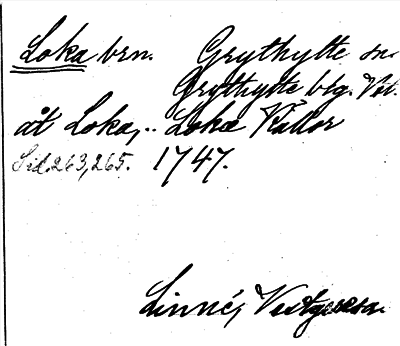 Loka brn. Grythytte sn.
Grythytte blg. Vstl.
åt Loka, .. Loka Källor
Sid. 263, 265. 1747.
Linné, Vestgöresa.